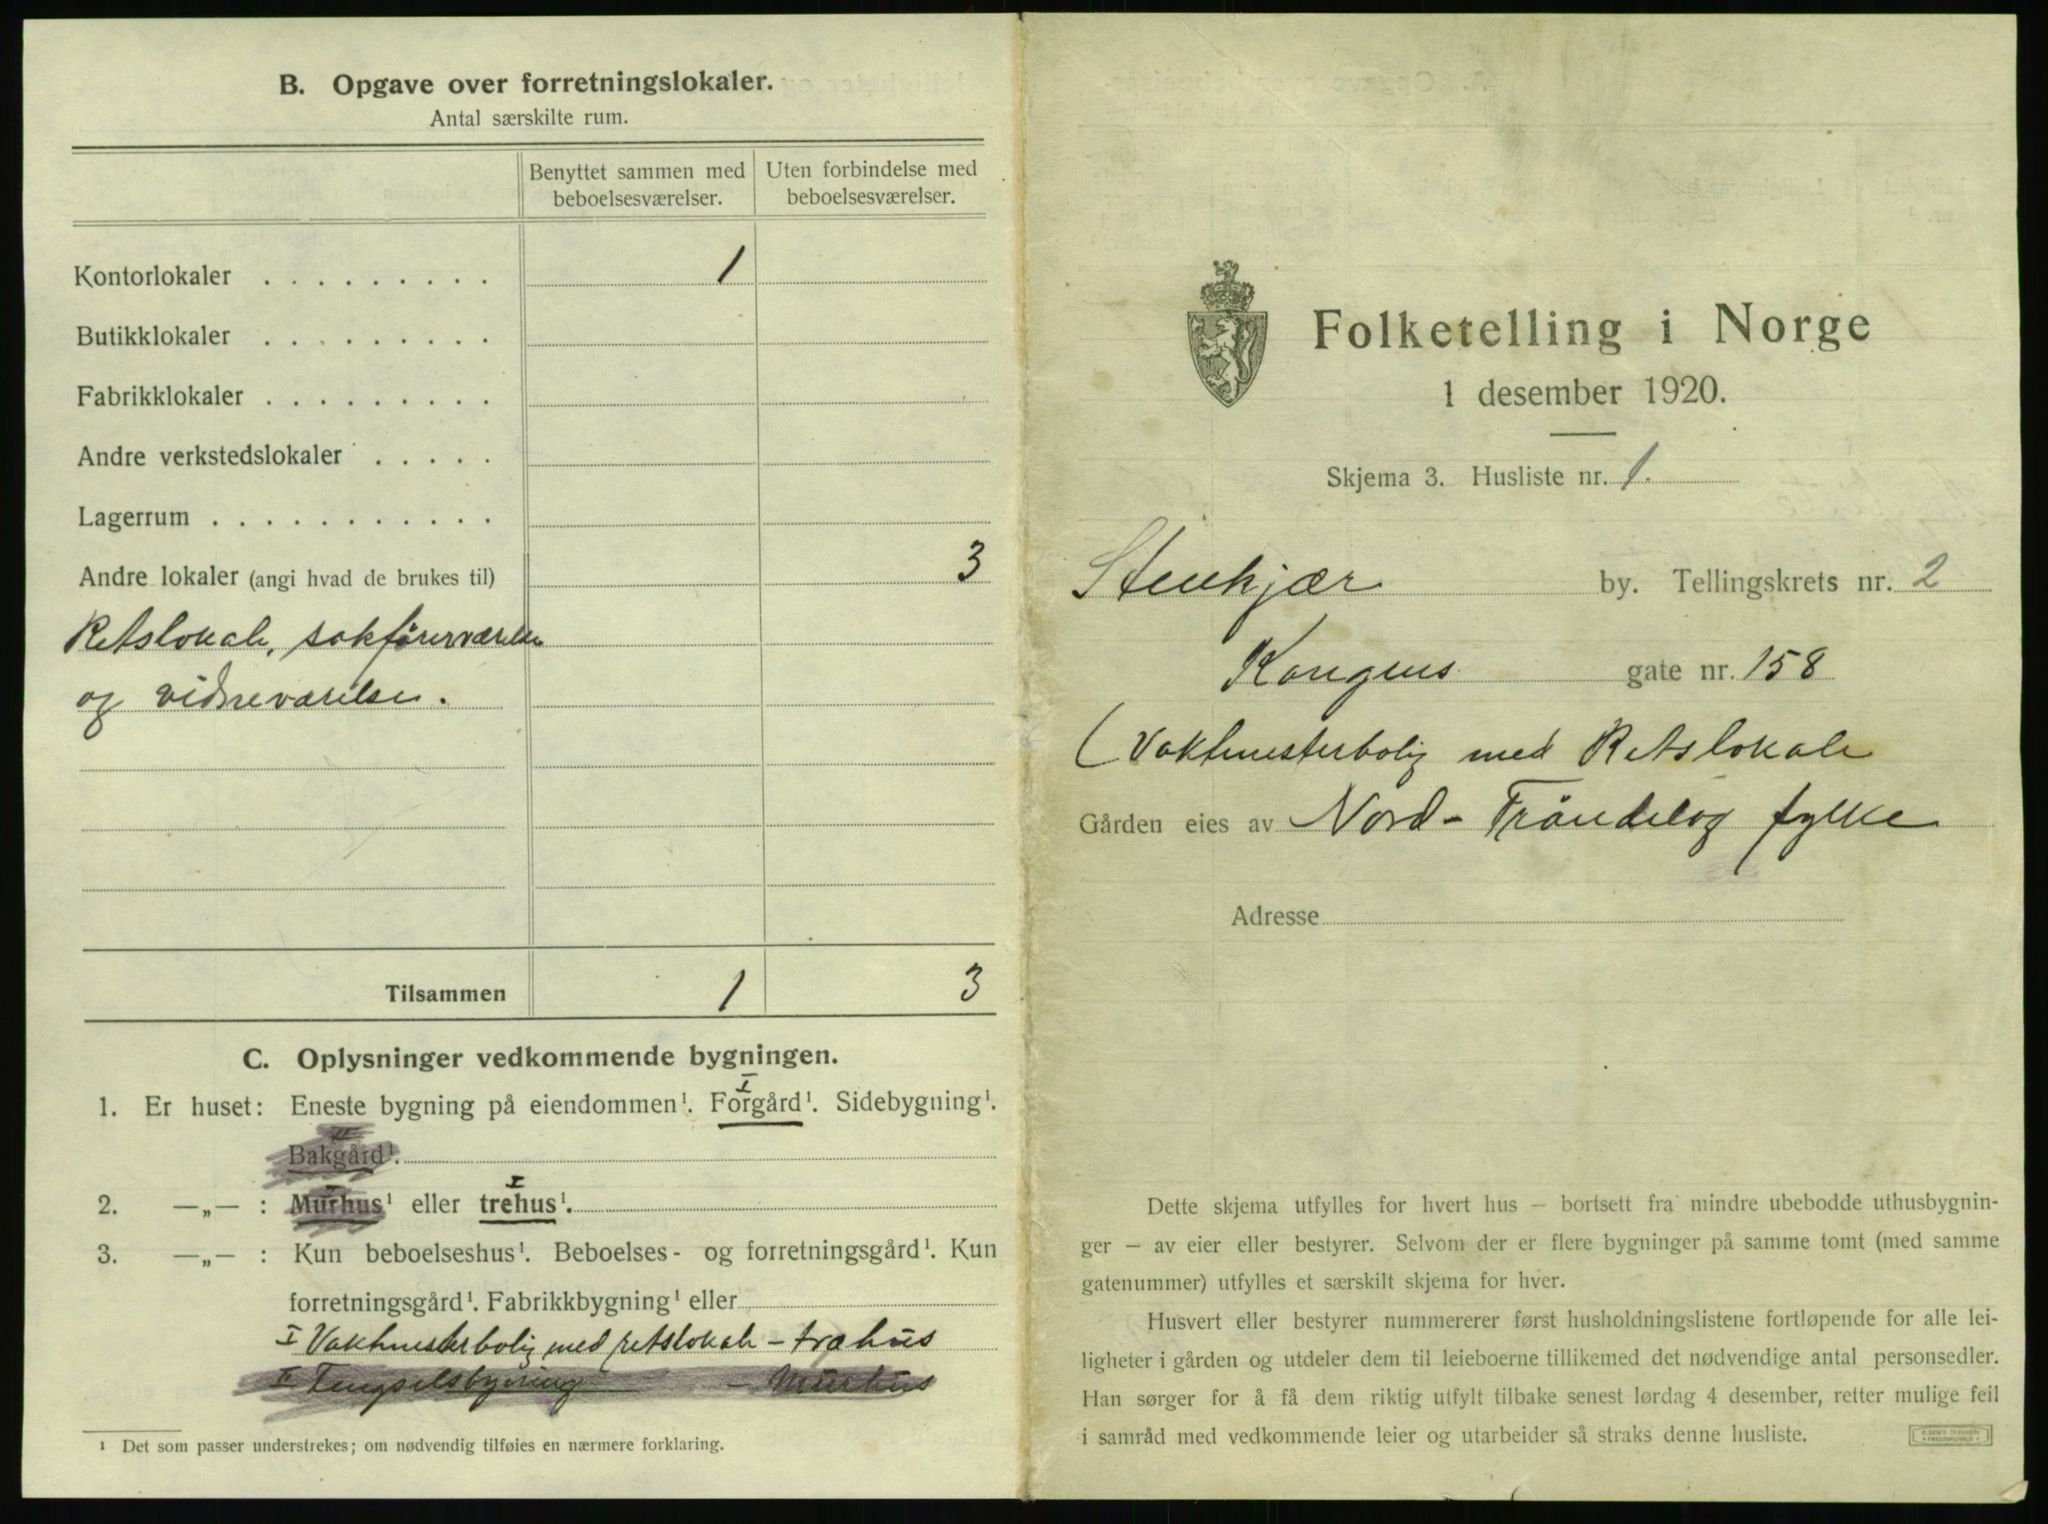 B. Opgave over forretningslokaler.
Antal særskilte rum.
Benyttet sammen med beboelsesværelser.
Uten forbindelse med beboelsesværelser.
Kontorlokaler . . . . . . . . . 1
Butikklokaler . . . . . . . . .
Fabrikklokaler . . . . . . . . .
Andre verkstedslokaler . . . . .
Lagerrum . . . . . . . . . . . .
Andre lokaler (angi hvad de brukes til) 3
Retslokale, sakførerværelse
og vidneværelse.
Tilsammen 1 3
C. Oplysninger vedkommende bygningen.
I
1. Er huset: Eneste bygning på eiendommen¹. Forgård¹. Sidebygning¹.
II
Bakgård¹.
I
2. —„— : Murhus¹ eller trehus¹.
3. —„— : Kun beboelseshus¹. Beboelses- og forretningsgård¹. Kun
forretningsgård¹. Fabrikkbygning¹ eller
I Vaktmesterbolig med retslokale – træhus
II Fengselsbygning – Murhus
¹ Det som passer understrekes; om nødvendig tilføies en nærmere forklaring.
Folketelling i Norge
1 desember 1920.
Skjema 3. Husliste nr. 1.
Stenkjær by. Tellingskrets nr. 2
Kongens gate nr. 158
(Vaktmesterbolig med Retslokale
Gården eies av Nord-Trøndelag fylke
Adresse
Dette skjema utfylles for hvert hus — bortsett fra mindre ubebodde uthusbygnin-
ger — av eier eller bestyrer. Selvom der er flere bygninger på samme tomt (med samme
gatenummer) utfylles et særskilt skjema for hver.
Husvert eller bestyrer nummererer først husholdningslistene fortløpende for alle lei-
ligheter i gården og utdeler dem til leieboerne tillikemed det nødvendige antal personsedler.
Han sørger for å få dem riktig utfylt tilbake senest lørdag 4 desember, retter mulige feil
i samråd med vedkommende leier og utarbeider så straks denne husliste.